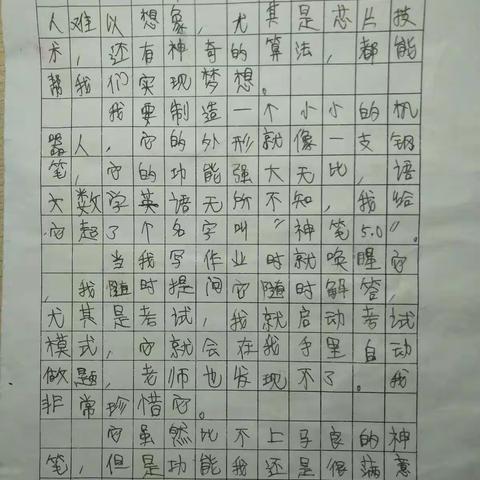 人难以想象，尤其是芯片技
术，还有神奇的算法，都能
帮我们实现梦想。
我要制造一个小小的机
器人，它的外形就像一支钢
笔，它的功能强大无比，语
文数学英语无所不知，我给
它起了个名字叫“神笔5.0”。
当我写作业时就唤醒它
，我随时提问它随时解答，
尤其是考试，我就启动考试
模式，它就会在我手里自动
做题，老师也发现不了。我
非常珍惜它。
它虽然比不上马良的神
笔，但是功能我还是很满意